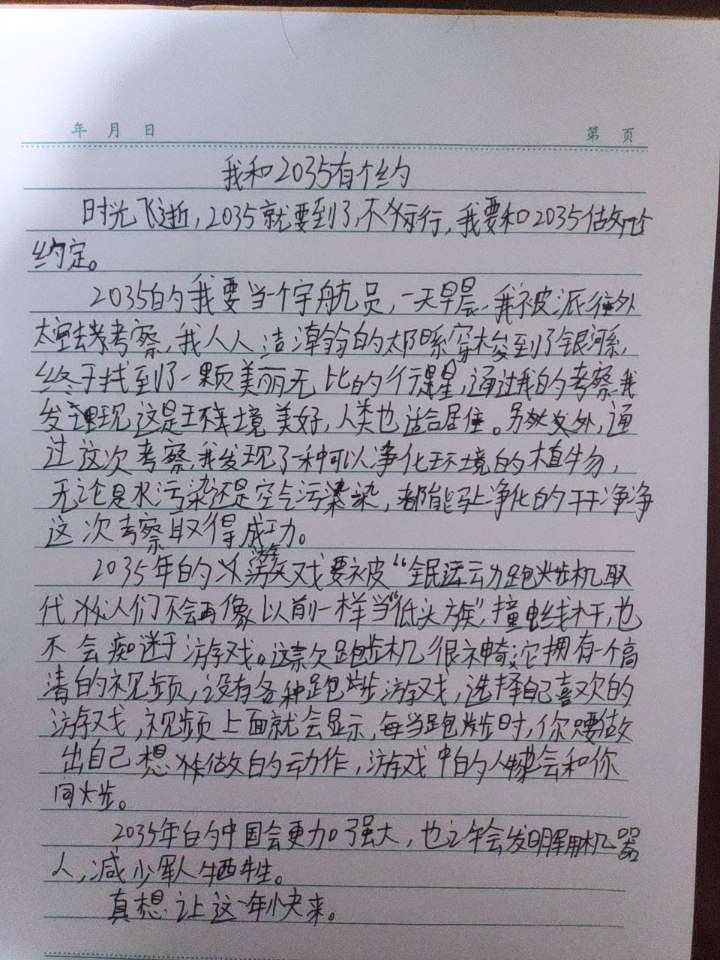 年 月 日 第 页
我和2035有个约
时光飞逝,2035就要到了,不行,我要和2035做个
约定。
2035的我要当个宇航员,一天早晨,我被派往外
太空去考察,我从人洁净的太阳系穿梭到了银河系,
终于找到了一颗美丽无比的行星,通过我的考察我
发现这是环境美好,人类也适合居住。另外,通
过这次考察,我发现了一种可以净化环境的植物,
无论是水污染还是空气污染,都能马上净化的干干净净
这次考察取得成功。
2035年的游戏要被“全民运动跑步机取
代,人们不会再像以前一样当“低头族”,撞电线杆,也
不会痴迷于游戏。这款跑步机很神奇,它拥有一个高
清的视频,设有各种跑步游戏,选择自己喜欢的
游戏,视频上面就会显示,每当跑步时,你要做
出自己想做的动作,游戏中的人物会和你
同步。
2035年的中国会更加强大,也许会发明军用机器
人,减少军人牺牲。
真想让这一年快来。